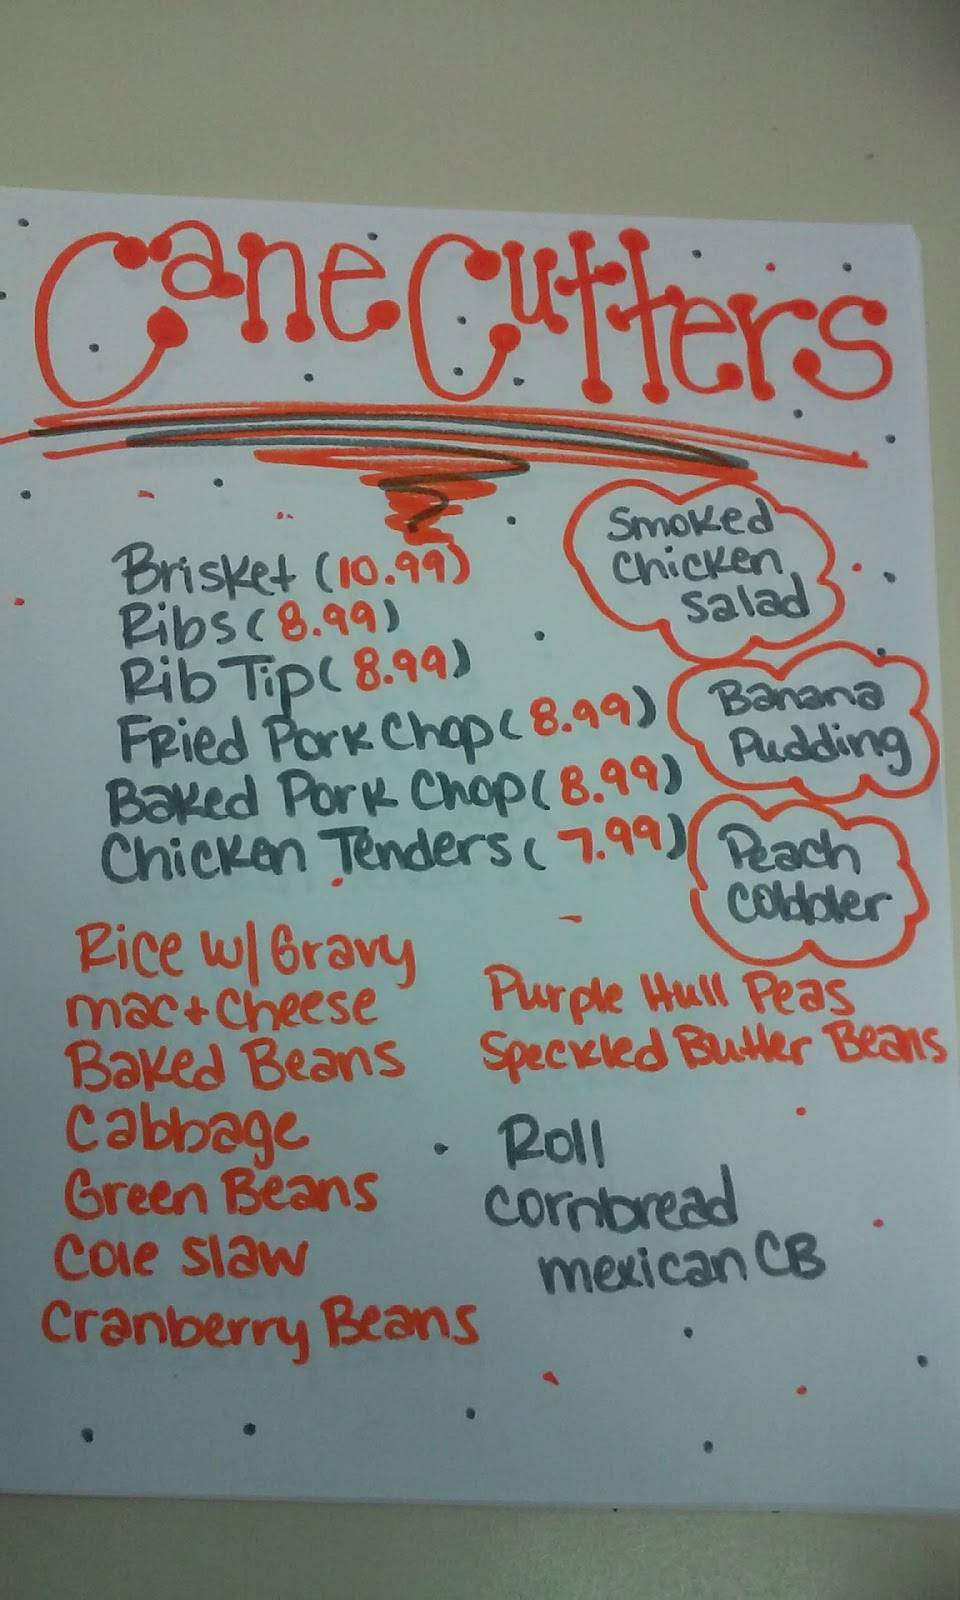 Cane Cutters
Brisket (10.99)
Ribs (8.99)
Rib Tip (8.99)
Fried Pork Chop (8.99)
Baked Pork Chop (8.99)
Chicken Tenders (7.99)
Smoked
Chicken
Salad
Banana
Pudding
Peach
Cobbler
Rice w/ Gravy
mac + Cheese
Baked Beans
Cabbage
Green Beans
Cole Slaw
Cranberry Beans
Purple Hull Peas
Speckled Butter Beans
Roll
Cornbread
mexican CB